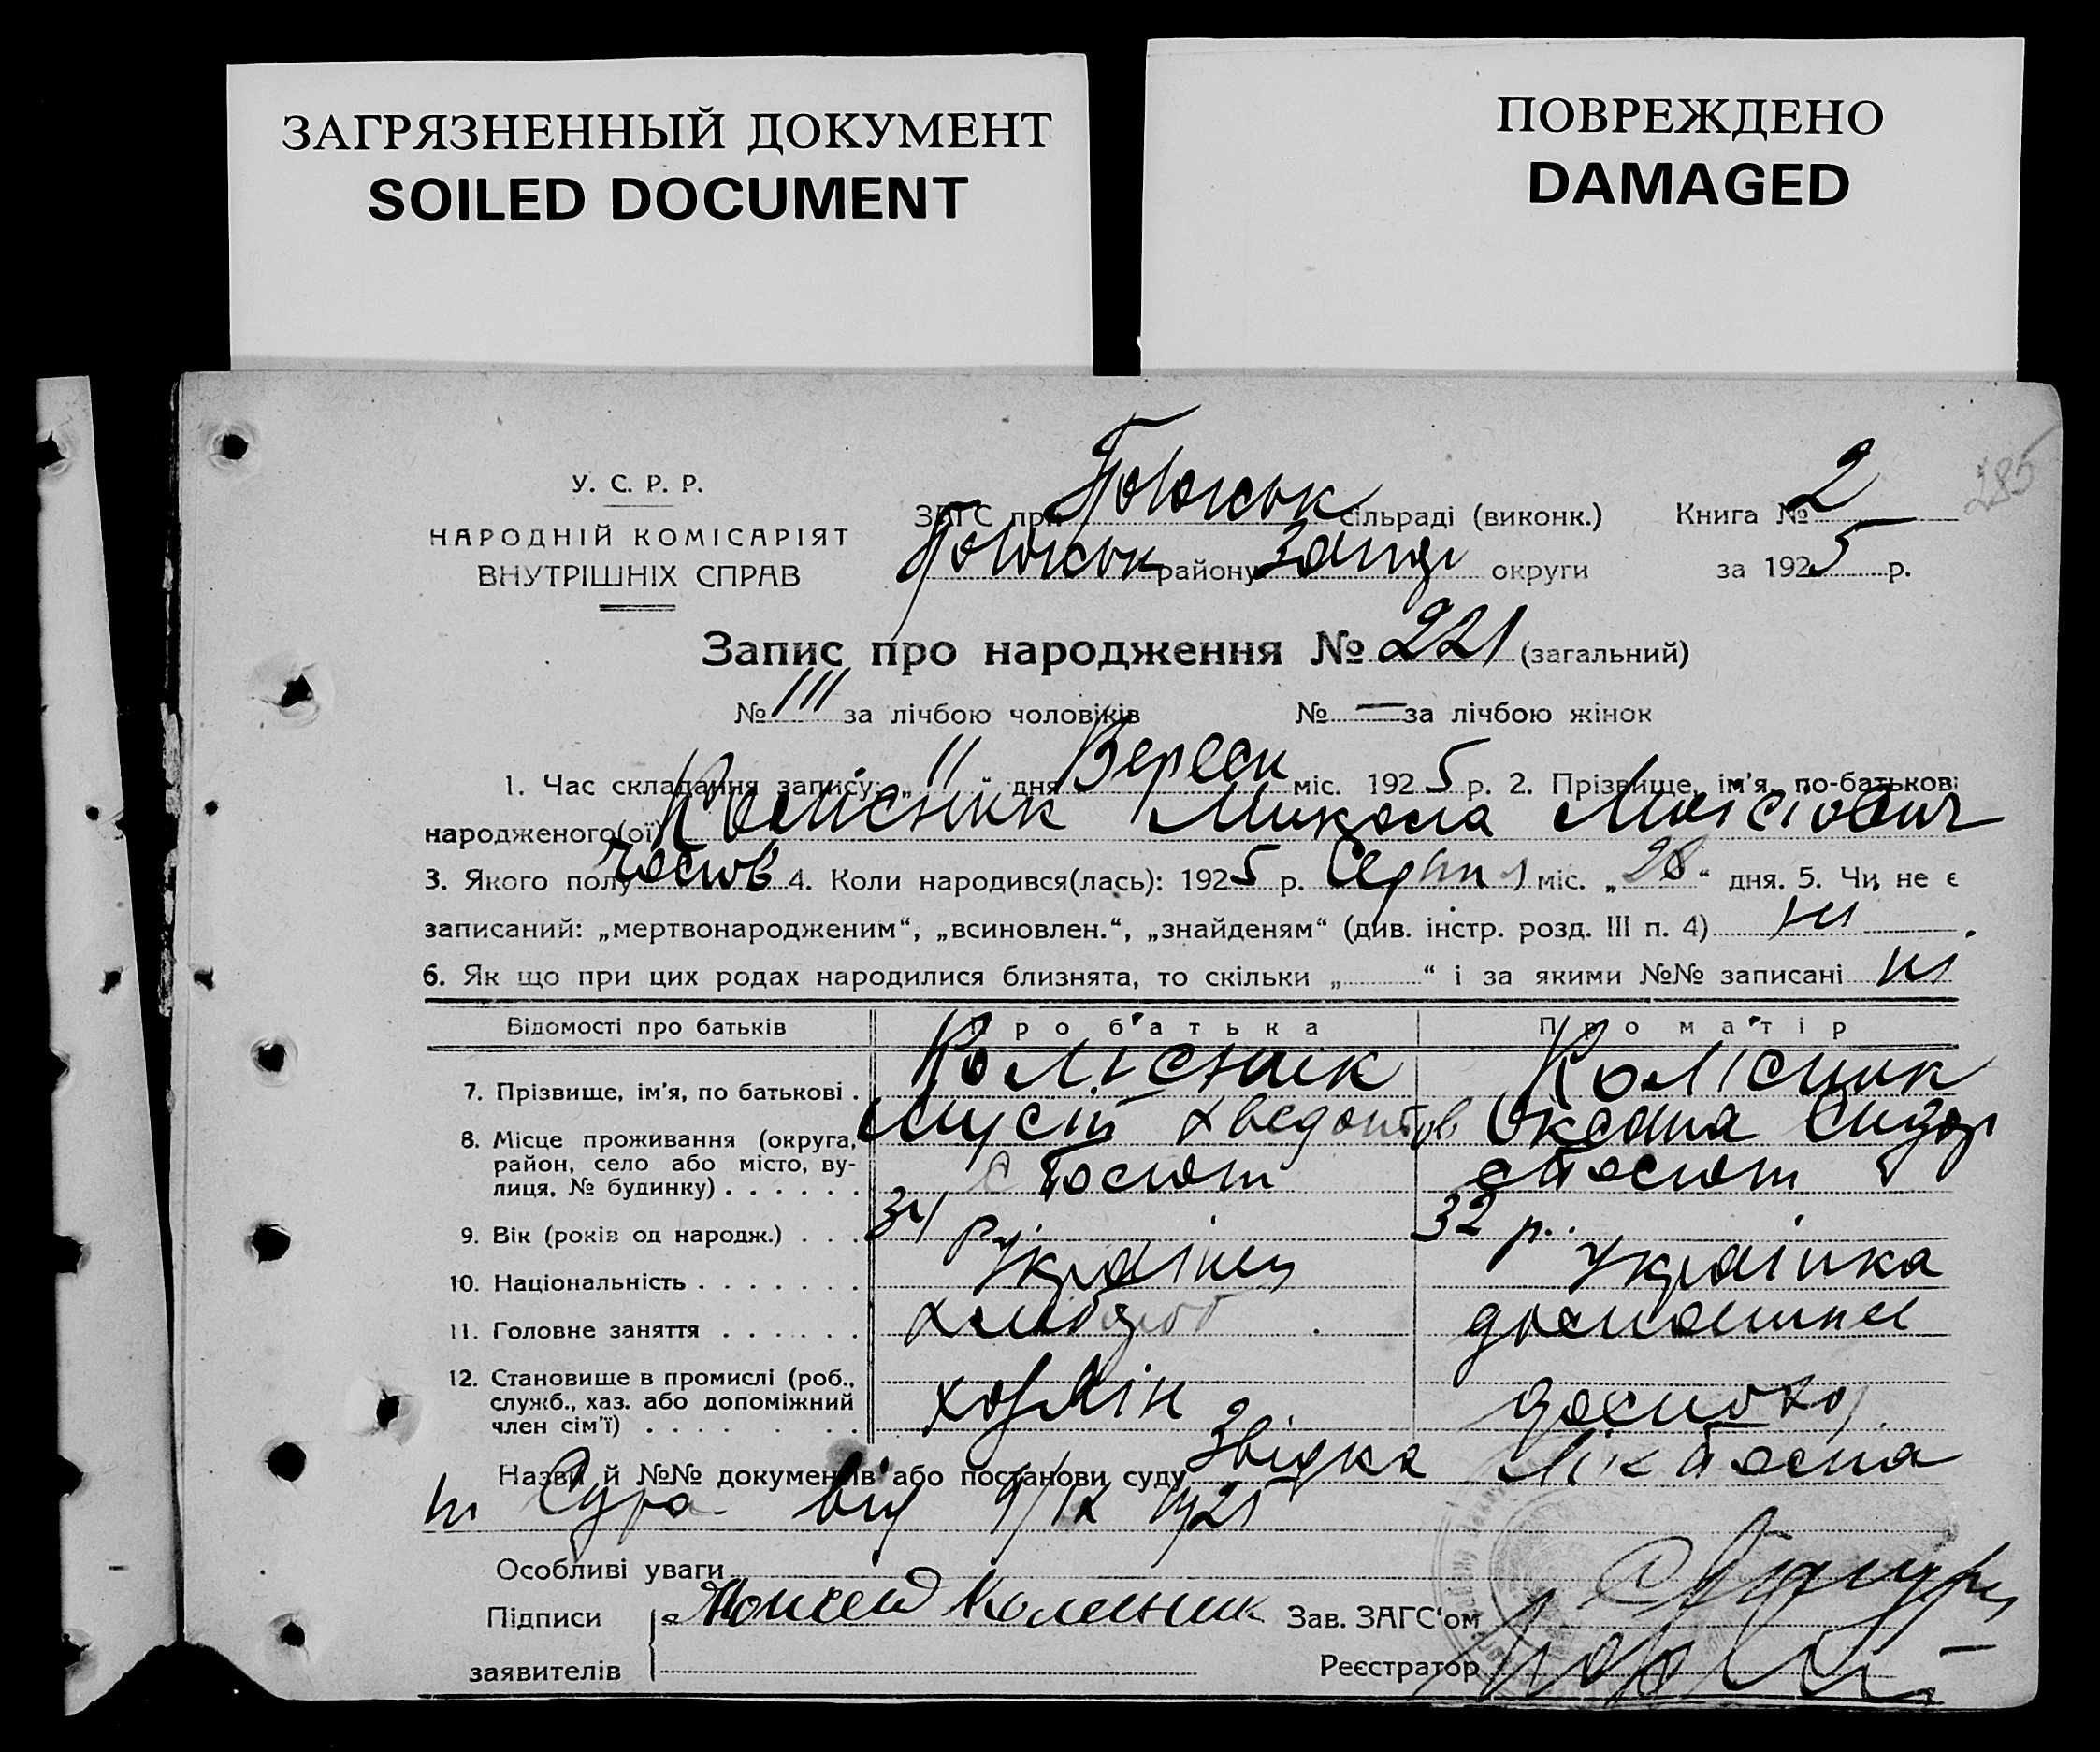 ЗАГРЯЗНЕННЫЙ ДОКУМЕНТ
SOILED DOCUMENT
ПОВРЕЖДЕНО
DAMAGED
285
У. С. Р. Р.
НАРОДНІЙ КОМІСАРІЯТ
ВНУТРІШНІХ СПРАВ
ЗАГС при сільраді (виконк.) Книга № 2
району округи за 1925 р.
Запис про народження № 221 (загальний)
№ 111 за лічбою чоловіків № — за лічбою жінок
1. Час складання запису: „ 11 " дня Вересн міс. 1925 р. 2. Прізвище, ім'я, по-батькові
народженого(ої) Колісник Микола Мусіович
3. Якого полу чолов 4. Коли народився(лась): 1925 р. Серпня міс. „ 28 " дня. 5. Чи не є
записаний: „мертвонародженим", „всиновлен.", „знайденям" (див. інстр. розд. III п. 4) ні
6. Як що при цих родах народилися близнята, то скільки „ " і за якими №№ записані ні
Відомості про батьків Про батька Про матір
7. Прізвище, ім'я, по батькові . Колісник Колісник
Мусій Хведотов Оксана Сидор
8. Місце проживання (округа, район, село або місто, вулиця, № будинку) . . . . . .
9. Вік (років од народж.) . . . 34 р. 32 р.
10. Національність . . . . . . . Українец Українка
11. Головне заняття . . . . . . хлібороб домашнє
12. Становище в промислі (роб., служб., хаз. або допоміжний член сім'ї) . . . . . . хазяїн
Назви й №№ документів або постанови суду
від 9/IX 1925
Особливі уваги
Підписи Моисей Колесник Зав. ЗАГС'ом
заявителів Реєстратор